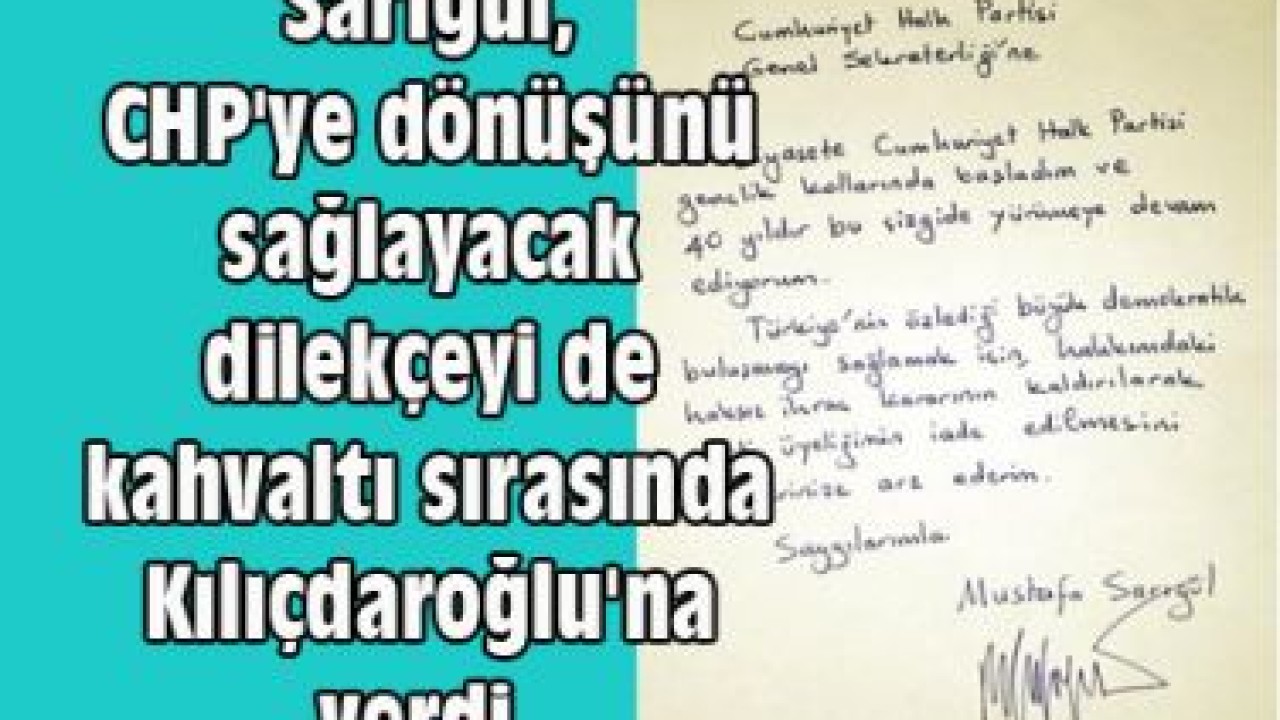 Sarıgül,
CHP'ye dönüşünü
sağlayacak
dilekçeyi de
kahvaltı sırasında
Kılıçdaroğlu'na
verdi
Cumhuriyet Halk Partisi
Genel Sekreterliği'ne
Cumhuriyet Halk Partisi
gençlik kollarında başladım ve
40 yıldır bu çizgide yürümeye devam
ediyorum.
Türkiye'nin özlediği büyük demokratik
buluşmayı sağlamak için hakkımdaki
haksız ihraç kararının kaldırılarak
üyeliğimin iade edilmesini
arz ederim.
Saygılarımla
Mustafa Sarıgül